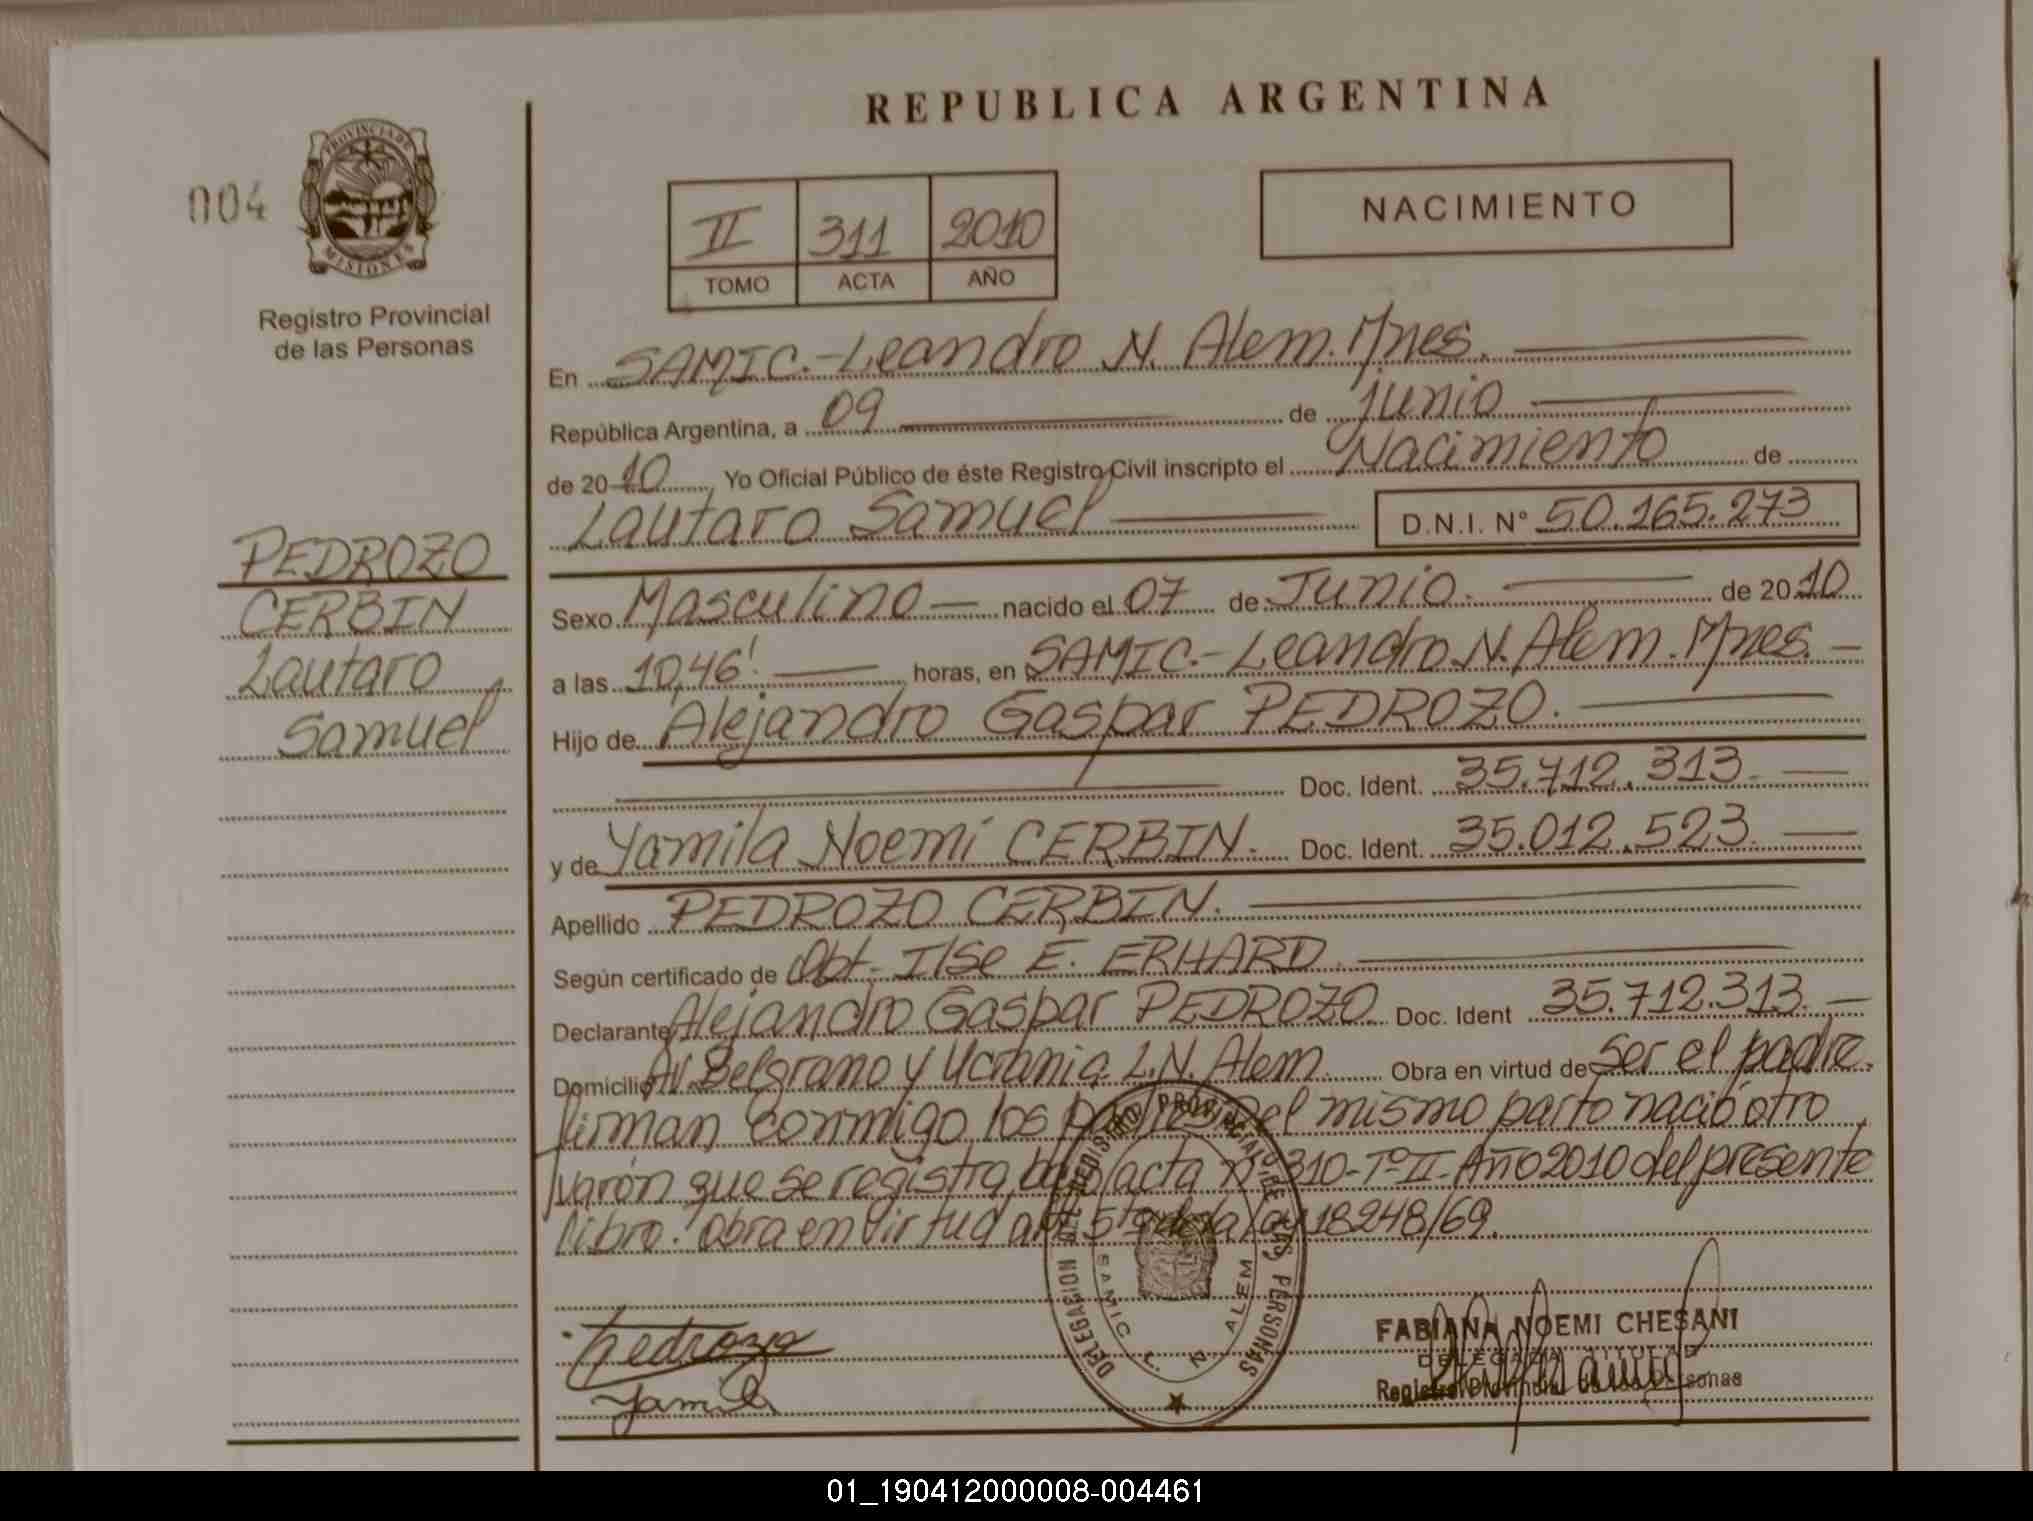 REPUBLICA ARGENTINA
004
PROVINCIA DE
MISIONES
Registro Provincial
de las Personas
II 311 2010
TOMO ACTA AÑO
NACIMIENTO
En SAMIC.-Leandro N. Alem. Mnes.
República Argentina, a 09 de junio
de 2010 Yo Oficial Público de éste Registro Civil inscripto el Nacimiento de
Lautaro Samuel D.N.I. Nº 50.165.273
PEDROZO
CERBIN
Lautaro
Samuel
Sexo Masculino nacido el 07 de Junio. de 2010
a las 10,46' horas, en SAMIC.-Leandro N. Alem. Mnes.
Hijo de Alejandro Gaspar PEDROZO.
Doc. Ident. 35.712.313.
y de Yamila Noemí CERBIN. Doc. Ident. 35.012.523.
Apellido PEDROZO CERBIN.
Según certificado de Obt. Ilse E. ERHARD.
Declarante Alejandro Gaspar PEDROZO. Doc. Ident 35.712.313.
Domicilio Av. Belgrano y Ucrania. L.N. Alem. Obra en virtud de ser el padre.
firman conmigo los padres. Del mismo parto nació otro
varón que se registra bajo acta nº 310-Tº II-Año 2010 del presente
libro. Obra en virtud art. 5º de la ley 18248/69.
DELEGACION DEL REGISTRO PROVINCIAL DE LAS PERSONAS
SAMIC L. N. ALEM
Pedrozo
Yamila
FABIANA NOEMI CHESANI
DELEGADA TITULAR
Registro Provincial de las Personas
01_190412000008-004461